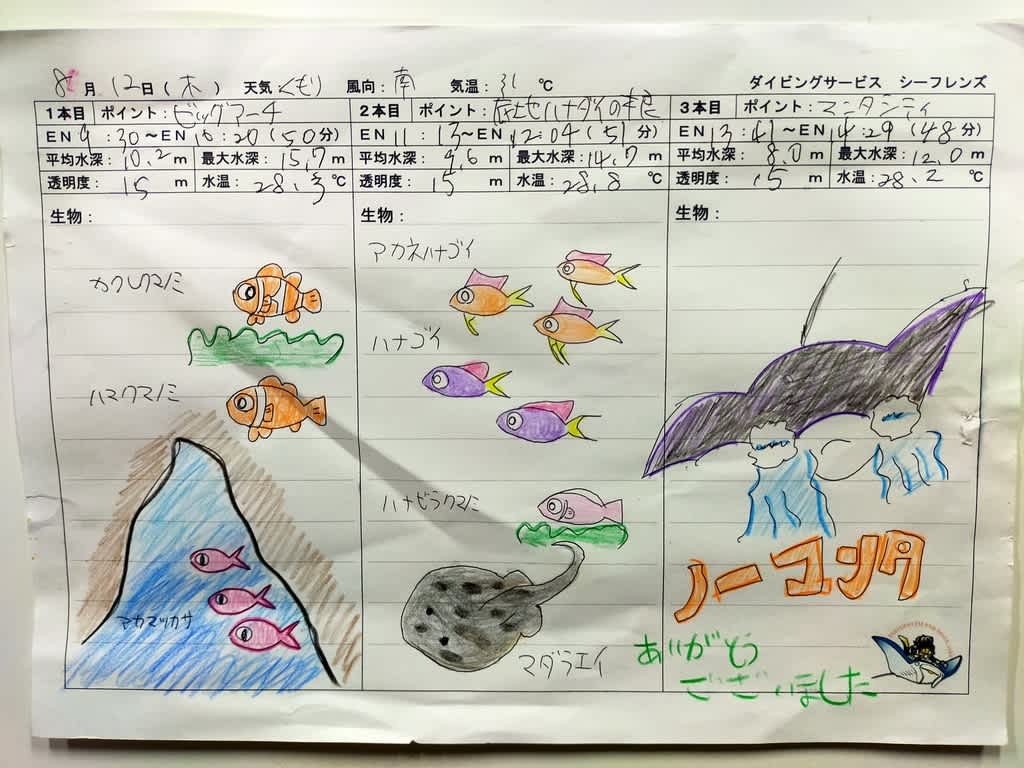 8月12日(木) 天気くもり 風向:南 気温:31℃ ダイビングサービス シーフレンズ
1本目 ポイント:ビッグアーチ
EN 9:30〜EN 10:20(50分)
平均水深:10.2m 最大水深:15.7m
透明度:15m 水温:28.3℃
生物:
カクレクマノミ
ハマクマノミ
アカマツカサ
2本目 ポイント:ハナダイの
EN 11:13〜EN 12:04(51分)
平均水深:9.6m 最大水深:14.7m
透明度:15m 水温:28.8℃
生物:
アカネハナゴイ
ハナゴイ
ハナビラクマノミ
マダラエイ
3本目 ポイント:マンタシティ
EN 13:41〜EN 14:29(48分)
平均水深:8.0m 最大水深:12.0m
透明度:15m 水温:28.2℃
生物:
ノーマンタ
ありがとう
ございました